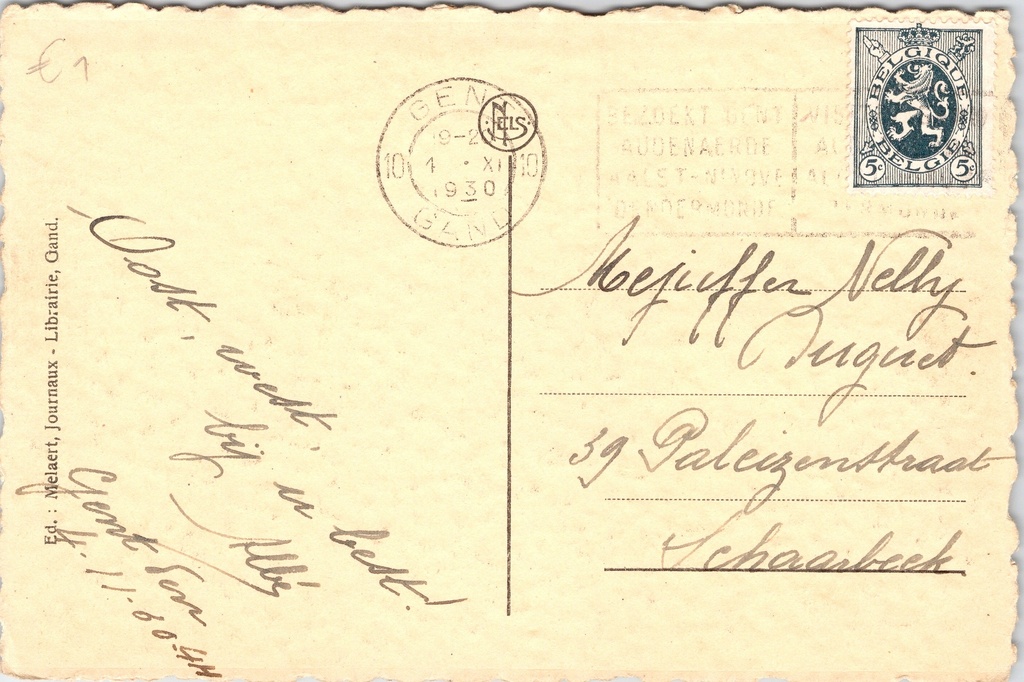 € 1
GENT
19-20
10 4 · XI 10
1930
GAND
NELS
BEZOEKT GENT
AUDENAERDE
AALST-NINOVE
DENDERMONDE
BELGIQUE
BELGIË
5c 5c
Ed. : Melaert, Journaux - Librairie, Gand.
Oost, west,
bij u best!
Albé
Gent
4.11.30
Mejuffer Nelly
Duquet.
39 Paleizenstraat
Schaarbeek.